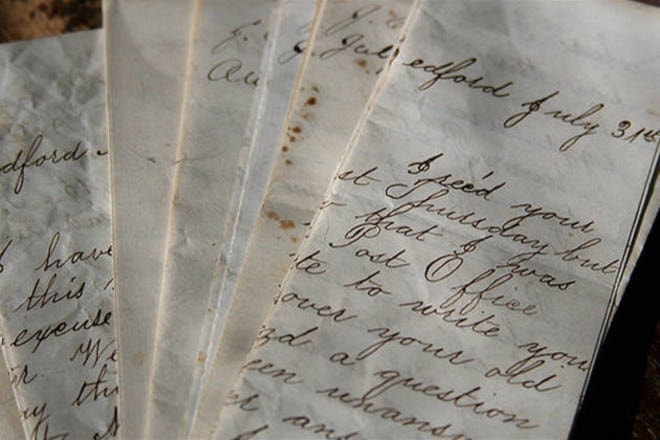 dford
I have
this
excuse
r. We
ay th
J.
Au
Jul
edford July 31st
I rec'd your
st Thursday but
that I was
Post Office
te to write you
over your old
d a question
een unansw
er an